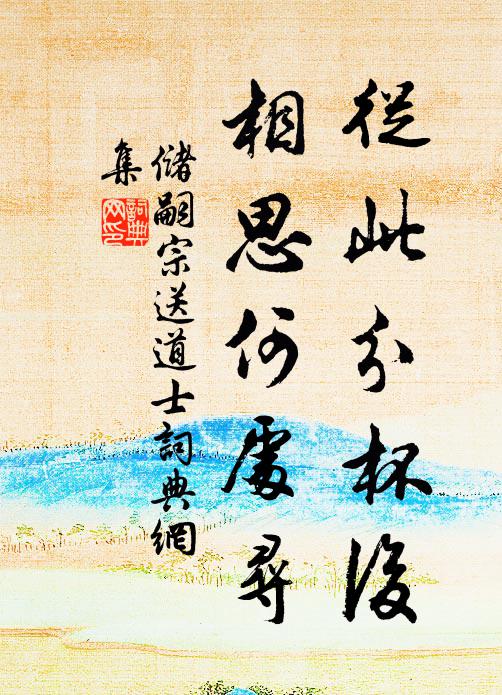 從此分杯後
相思何處尋
儲嗣宗送道士詞典網
集
詞典
网印